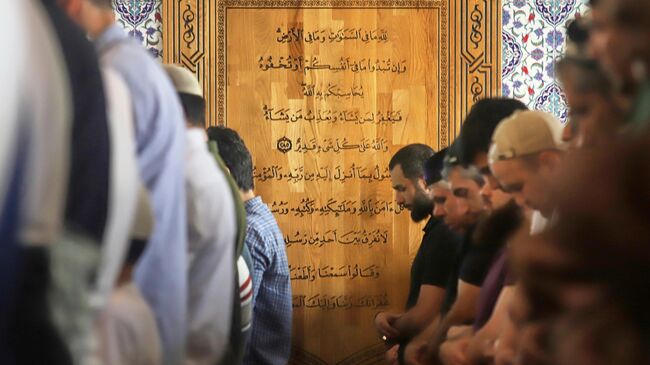 لِلّٰهِ مَا فِي السَّمٰوَاتِ وَمَا فِي الْاَرْضِ
وَاِنْ تُبْدُوا مَا فِي اَنْفُسِكُمْ اَوْ تُخْفُوهُ
يُحَاسِبْكُمْ بِهِ اللّٰهُ
فَيَغْفِرُ لِمَنْ يَشَاءُ وَيُعَذِّبُ مَنْ يَشَاءُ
وَاللّٰهُ عَلٰى كُلِّ شَيْءٍ قَدِيرٌ
بِمَا اُنْزِلَ اِلَيْهِ مِنْ رَبِّهِ
كُلٌّ اٰمَنَ بِاللّٰهِ وَمَلٰئِكَتِهِ وَكُتُبِهِ وَرُسُلِهِ
لَا نُفَرِّقُ بَيْنَ اَحَدٍ مِنْ رُسُلِهِ
وَقَالُوا سَمِعْنَا وَاَطَعْنَا
غُفْرَانَكَ رَبَّنَا وَاِلَيْكَ